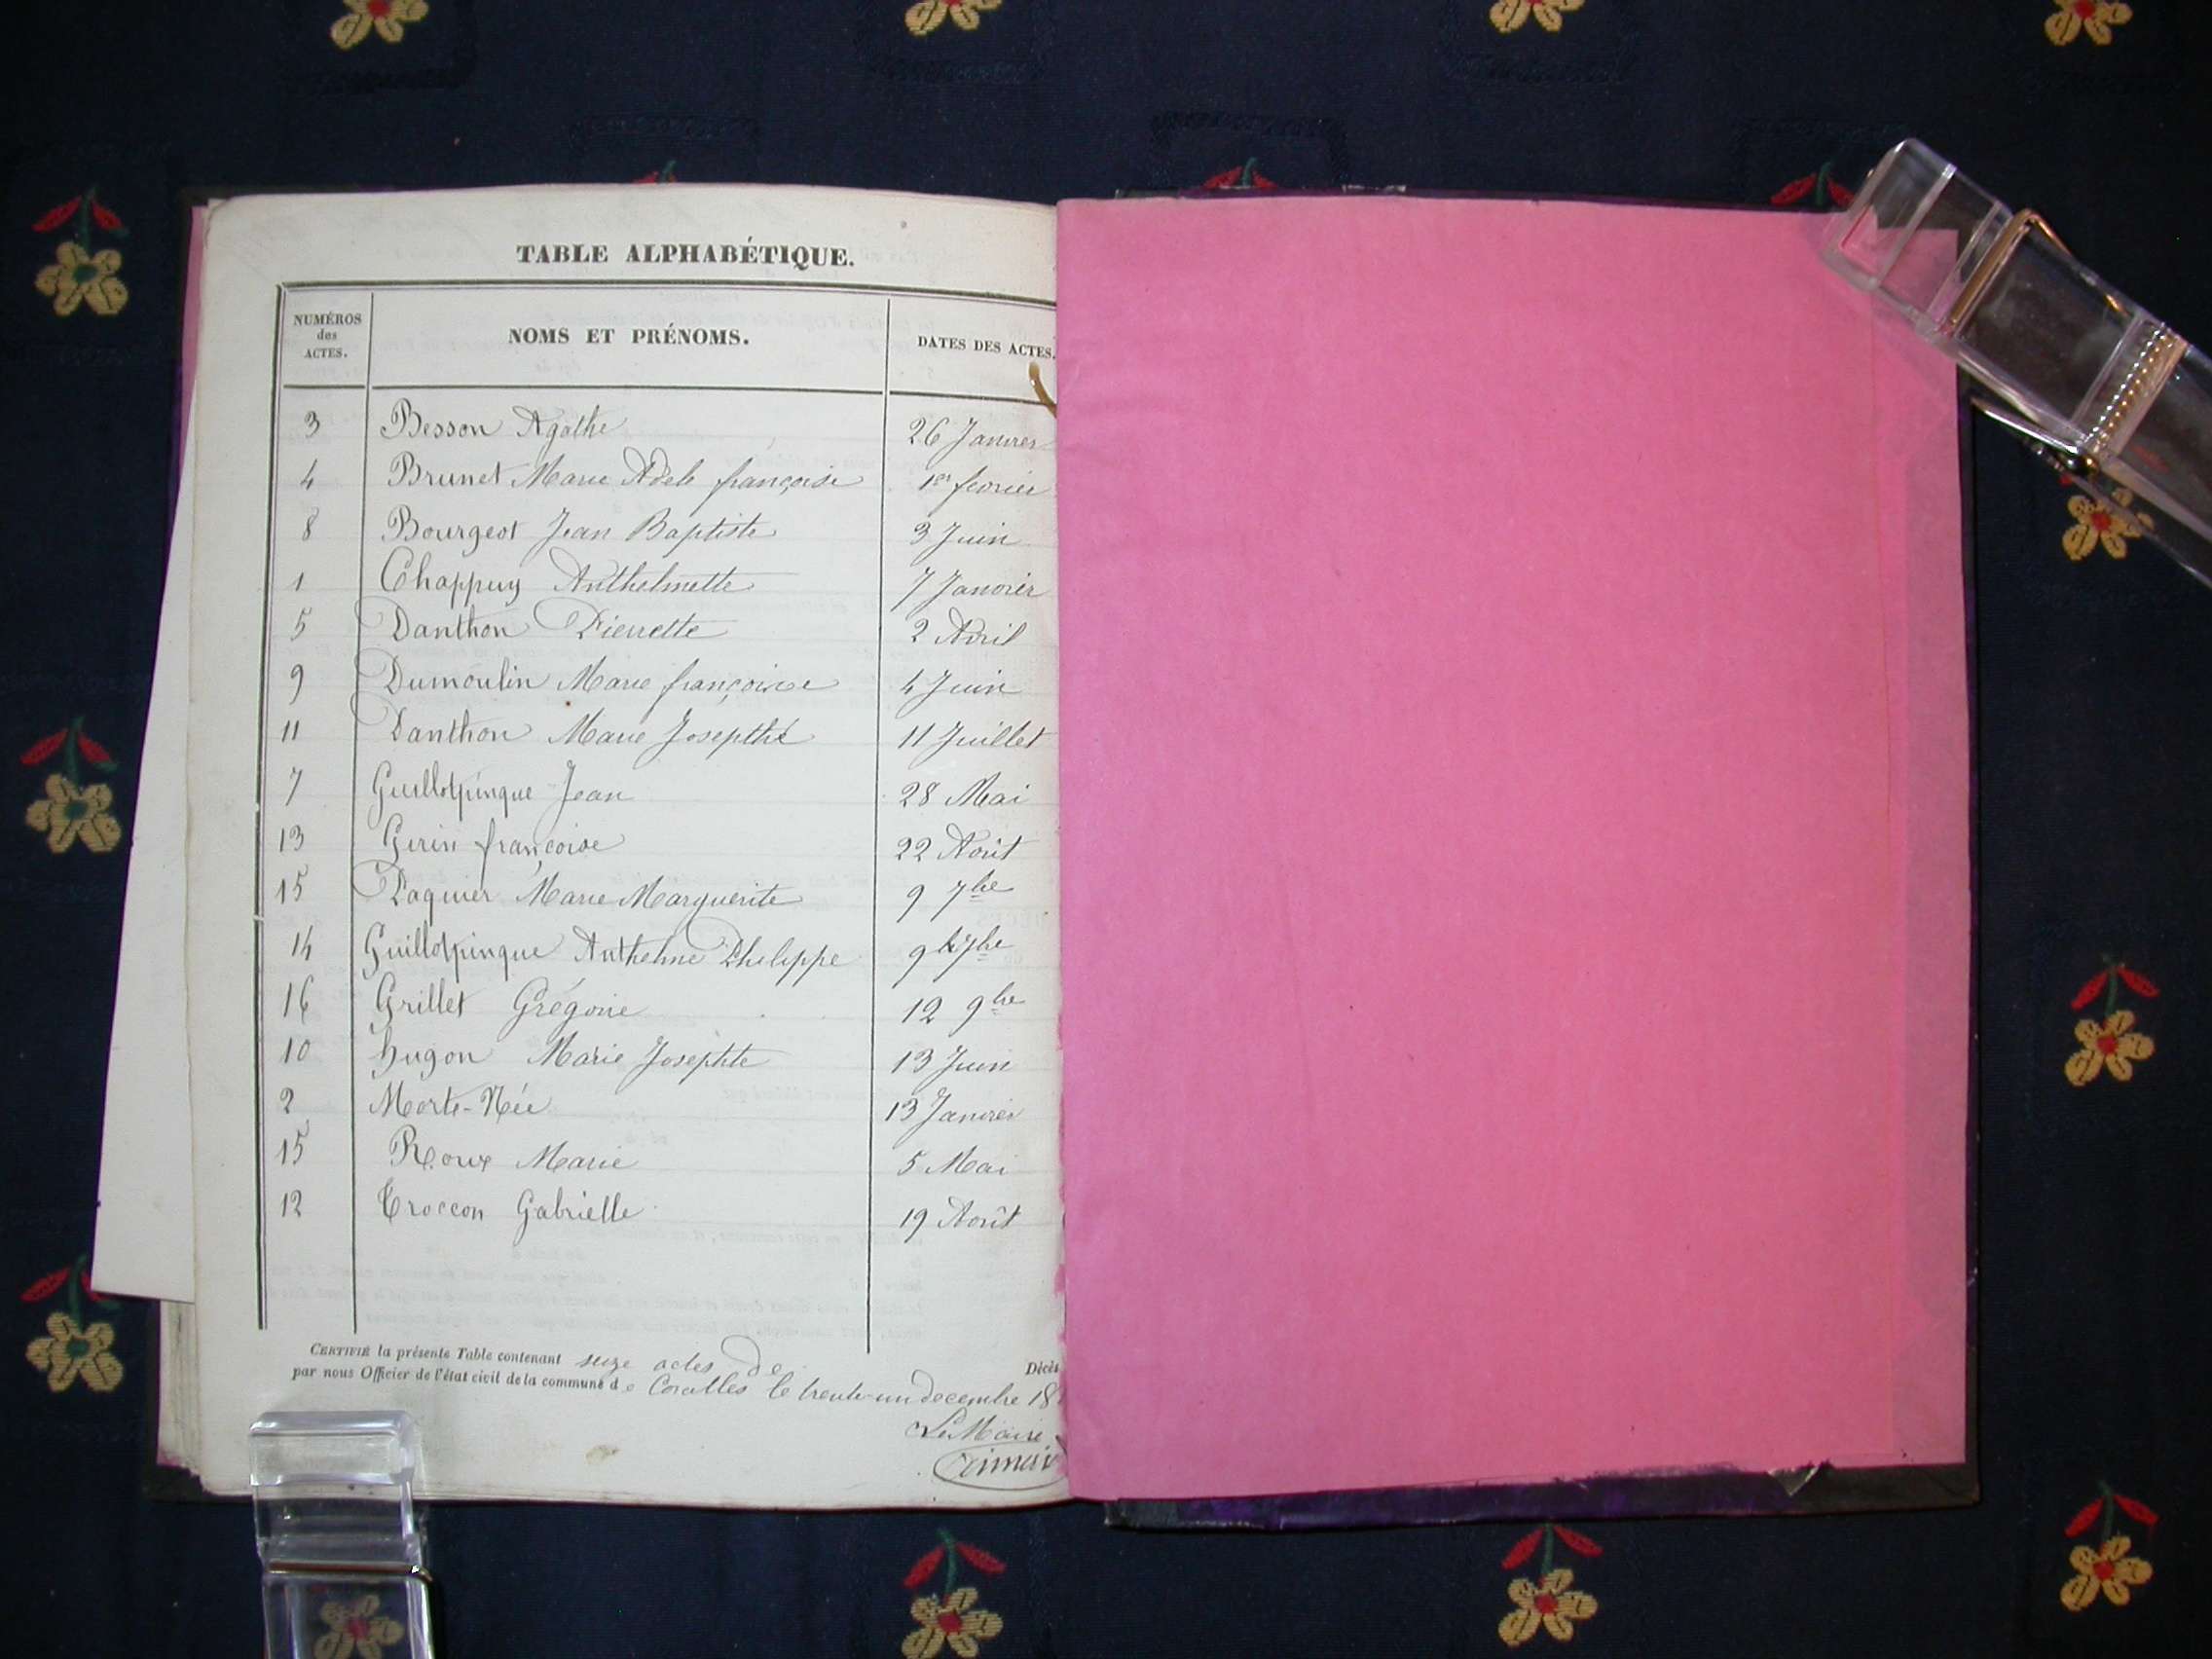 TABLE ALPHABÉTIQUE.
NUMÉROS des ACTES. NOMS ET PRÉNOMS. DATES DES ACTES.
3 Besson Agathe 26 Janvier
4 Brunet Marie Adele françoise 1er fevrier
8 Bourgeot Jean Baptiste 3 Juin
1 Chappuy Anthelmette 7 Janvier
5 Danthon Pierrette 2 Avril
9 Dumoulin Marie françoise 4 Juin
11 Danthon Marie Josepthe 11 Juillet
7 Guillotpinque Jean 28 Mai
13 Girin françoise 22 Août
15 Paquier Marie Marguerite 9 7bre
14 Guillotpinque Anthelme Philippe 9 7bre
16 Grillet Grégoire 12 9bre
10 hugon Marie Josephte 13 Juin
2 Morte-Née 13 Janvier
15 Roux Marie 5 Mai
12 Troccon Gabrielle 19 Août
CERTIFIÉ la présente Table contenant seize actes de Décès
par nous Officier de l'état civil de la commune de le trente-un decembre 18
Le Maire